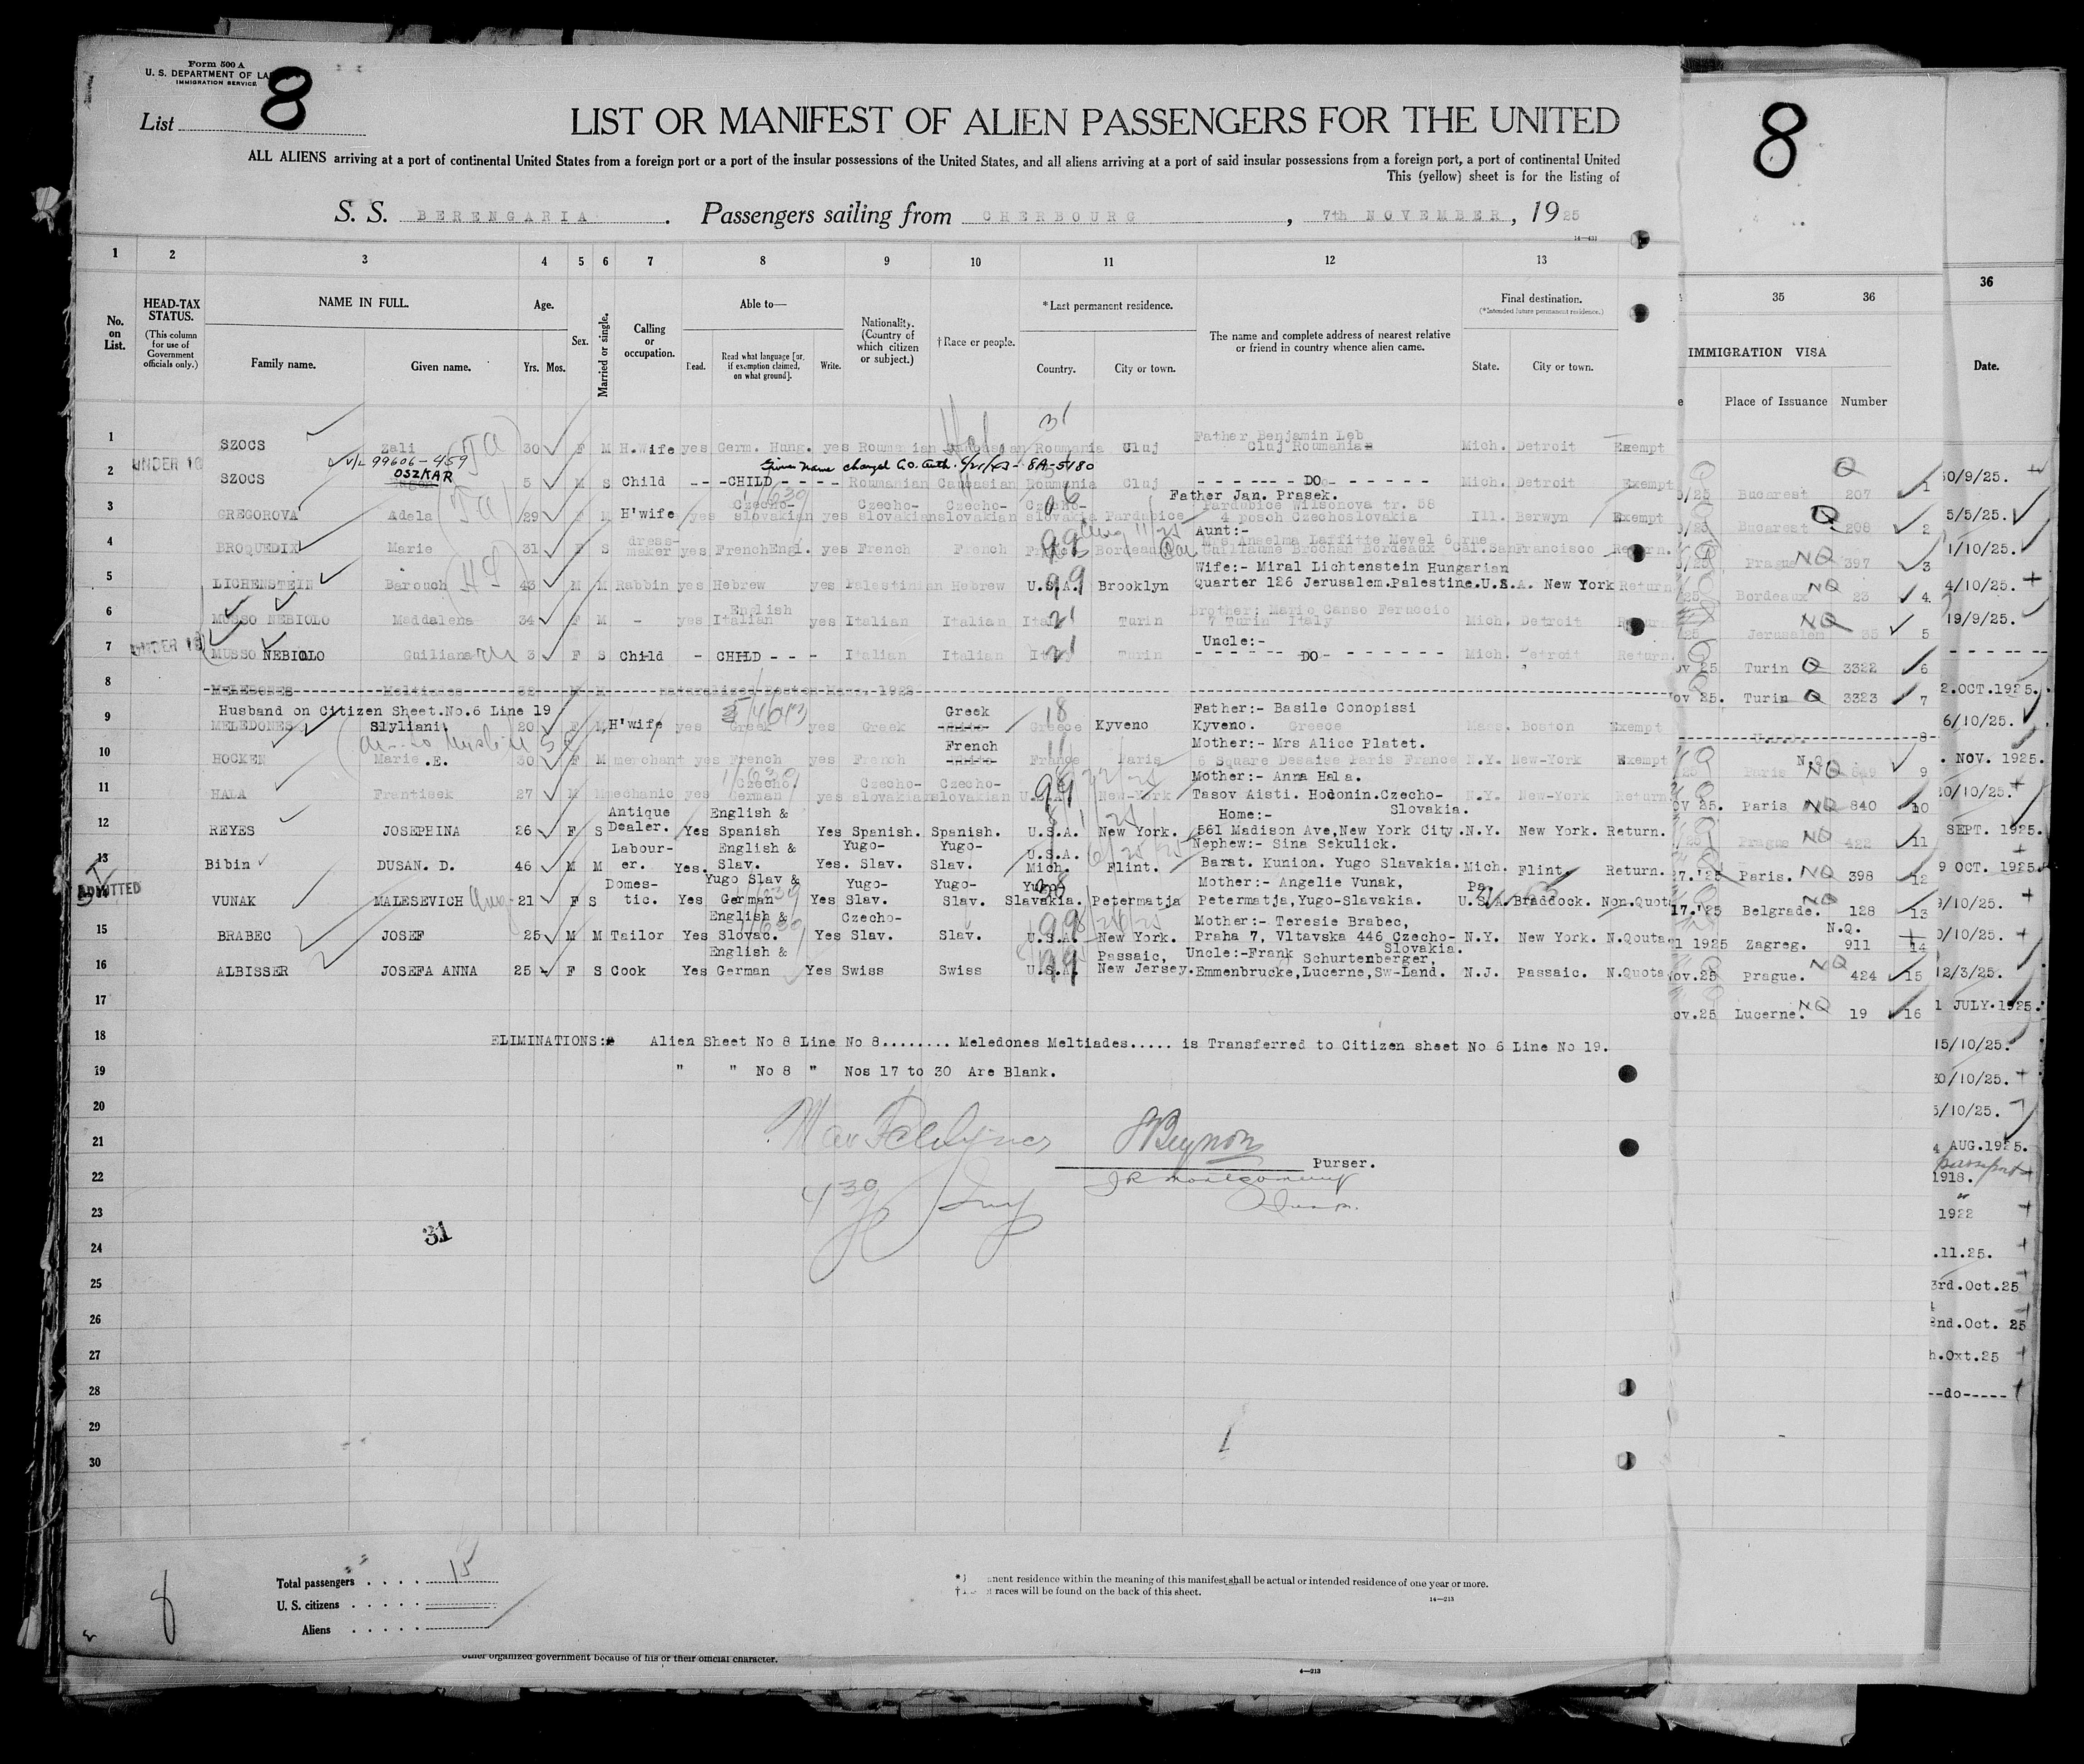 Form 500 A
U. S. DEPARTMENT OF LA
IMMIGRATION SERVICE
List 8
LIST OR MANIFEST OF ALIEN PASSENGERS FOR THE UNITED
ALL ALIENS arriving at a port of continental United States from a foreign port or a port of the insular possessions of the United States, and all aliens arriving at a port of said insular possessions from a foreign port, a port of continental United
This (yellow) sheet is for the listing of
S. S. BERENGARIA . Passengers sailing from CHERBOURG , 7th NOVEMBER , 1925
14—431
1 2 3 4 5 6 7 8 9 10 11 12 13
No. on List.
HEAD-TAX STATUS.
(This column for use of Government officials only.)
NAME IN FULL.
Family name. Given name.
Age.
Yrs. Mos.
Sex.
Married or single.
Calling or occupation.
Able to—
Read. Read what language [or, if exemption claimed, on what ground]. Write.
Nationality. (Country of which citizen or subject.)
†Race or people.
*Last permanent residence.
Country. City or town.
The name and complete address of nearest relative or friend in country whence alien came.
Final destination.
(*Intended future permanent residence.)
State. City or town.
1 SZOCS Zali 30 F M H.Wife yes Germ. Hung. yes Roumanian Caucasian Roumania Cluj Father Benjamin Leb Cluj Roumania Mich. Detroit Exempt
UNDER 16
V/L 99606-459
Given name changed CO. Auth. 8A-5180
2 SZOCS OSZKAR 5 M S Child - - -CHILD - - - - Roumanian Caucasian Roumania Cluj - - - DO - - - Mich. Detroit Exempt
3 GREGOROVA Adela 29 F M H'wife yes Czecho-slovakian yes Czecho-slovakian Czecho-slovakian Czecho-slovakia Pardubice Father Jan. Prasek. Pardubice Wilsonova tr. 58 4 posch Czechoslovakia Ill. Berwyn Exempt
4 BROQUEDIX Marie 31 F S dress-maker yes French Engl. yes French French France Bordeaux Aunt:- Mrs Anselma Laffitte Mevel 6 rue Guillaume Brochan Bordeaux Cal. San Francisco Return.
5 LICHENSTEIN Barouch 43 M M Rabbin yes Hebrew yes Palestinian Hebrew U.S.A. Brooklyn Wife:- Miral Lichtenstein Hungarian Quarter 126 Jerusalem.Palestine.U.S.A. New York Return
6 MUSSO NEBIOLO Maddalena 34 F M - yes English Italian yes Italian Italian Italy Turin Brother: Mario Canso Feruccio 7 Turin Italy Mich. Detroit Return
UNDER 16
7 MUSSO NEBIOLO Guiliana 3 F S Child - CHILD - - - Italian Italian Italy Turin Uncle:- - - - DO - - - Mich. Detroit Return.
8 MELEDONES Meltiades 32 M M naturalized Boston Mass. 1922
Husband on Citizen Sheet.No.6 Line 19
9 MELEDONES Slyliani. 20 F M H'wife yes Greek yes Greek Greek White Greece Kyveno Father:- Basile Conopissi Kyveno. Greece Mass. Boston Exempt
10 HOCKEN Marie .E. 30 F M merchant yes French yes French French White France Paris Mother:- Mrs Alice Platet. 6 Square Desaise Paris France N.Y. New-York Exempt
11 HALA Frantisek 27 M M mechanic yes Czecho. German yes Czecho-slovakian Czecho-slovakian U.S.A. New-York Mother:- Anna Hala. Tasov Aisti. Hodonin.Czecho-Slovakia. N.Y. New-York Return
12 REYES JOSEPHINA 26 F S Antique Dealer. Yes English & Spanish Yes Spanish. Spanish. U.S.A. New York. Home:- 561 Madison Ave,New York City. N.Y. New York. Return.
13 Bibin DUSAN. D. 46 M M Labour-er. Yes. English & Slav. Yes. Yugo-Slav. Yugo-Slav. U.S.A. Mich. Flint. Nephew:- Sina Sekulick. Barat. Kunion. Yugo Slavakia. Mich. Flint. Return.
ADMITTED
VUNAK MALESEVICH 21 F S Domes-tic. Yes Yugo Slav & German Yes Yugo-Slav. Yugo-Slav. Yugo Slavakia. Petermatja Mother:- Angelie Vunak, Petermatja,Yugo-Slavakia. Pa. U.S.A. Braddock. Non.Quota
15 BRABEC JOSEF 25 M M Tailor Yes English & Slovac. Yes Czecho-Slav. Slav. U.S.A. New York. Mother:- Teresie Brabec, Praha 7, Vltavska 446 Czecho-Slovakia. N.Y. New York. N.Qouta
16 ALBISSER JOSEFA ANNA 25 F S Cook Yes English & German Yes Swiss Swiss U.S.A. Passaic, New Jersey. Uncle:-Frank Schurtenberger, Emmenbrucke,Lucerne,Sw-Land. N.J. Passaic. N.Quota
17
18 ELIMINATIONS: Alien Sheet No 8 Line No 8........ Meledones Meltiades..... is Transferred to Citizen sheet No 6 Line No 19.
19 " " No 8 " Nos 17 to 30 Are Blank.
20
21
Purser.
22
23
31
24
25
26
27
28
29
30
Total passengers . . . . 15
U. S. citizens . . . . .
Aliens . . . . .
8
nent residence within the meaning of this manifest shall be actual or intended residence of one year or more.
races will be found on the back of this sheet.
14—213
other organized government because of his or their official character.
4—213
8
35 36
IMMIGRATION VISA
Place of Issuance Number
Bucarest 207 1
Bucarest 208 2
Prague NQ 397 3
Bordeaux NQ 23 4
Jerusalem NQ 35 5
Turin Q 3322 6
Turin Q 3323 7
8
Paris NQ 9
Paris NQ 840 10
Prague NQ 422 11
Paris. NQ 398 12
Belgrade. NQ 128 13
Zagreg. N.Q. 911 14
Prague. NQ 424 15
Lucerne. NQ 19 16
36
Date.
30/9/25.
5/5/25.
1/10/25.
4/10/25.
19/9/25.
2.OCT.1925.
6/10/25.
. NOV. 1925.
20/10/25.
SEPT. 1925.
9 OCT. 1925.
/10/25.
0/10/25.
12/3/25.
1 JULY.1925.
15/10/25.
30/10/25.
5/10/25.
4 AUG.1925.
passport
1918.
1922
.11.25.
3rd.Oct.25
2nd.Oct. 25
h.Oxt.25
--do-----